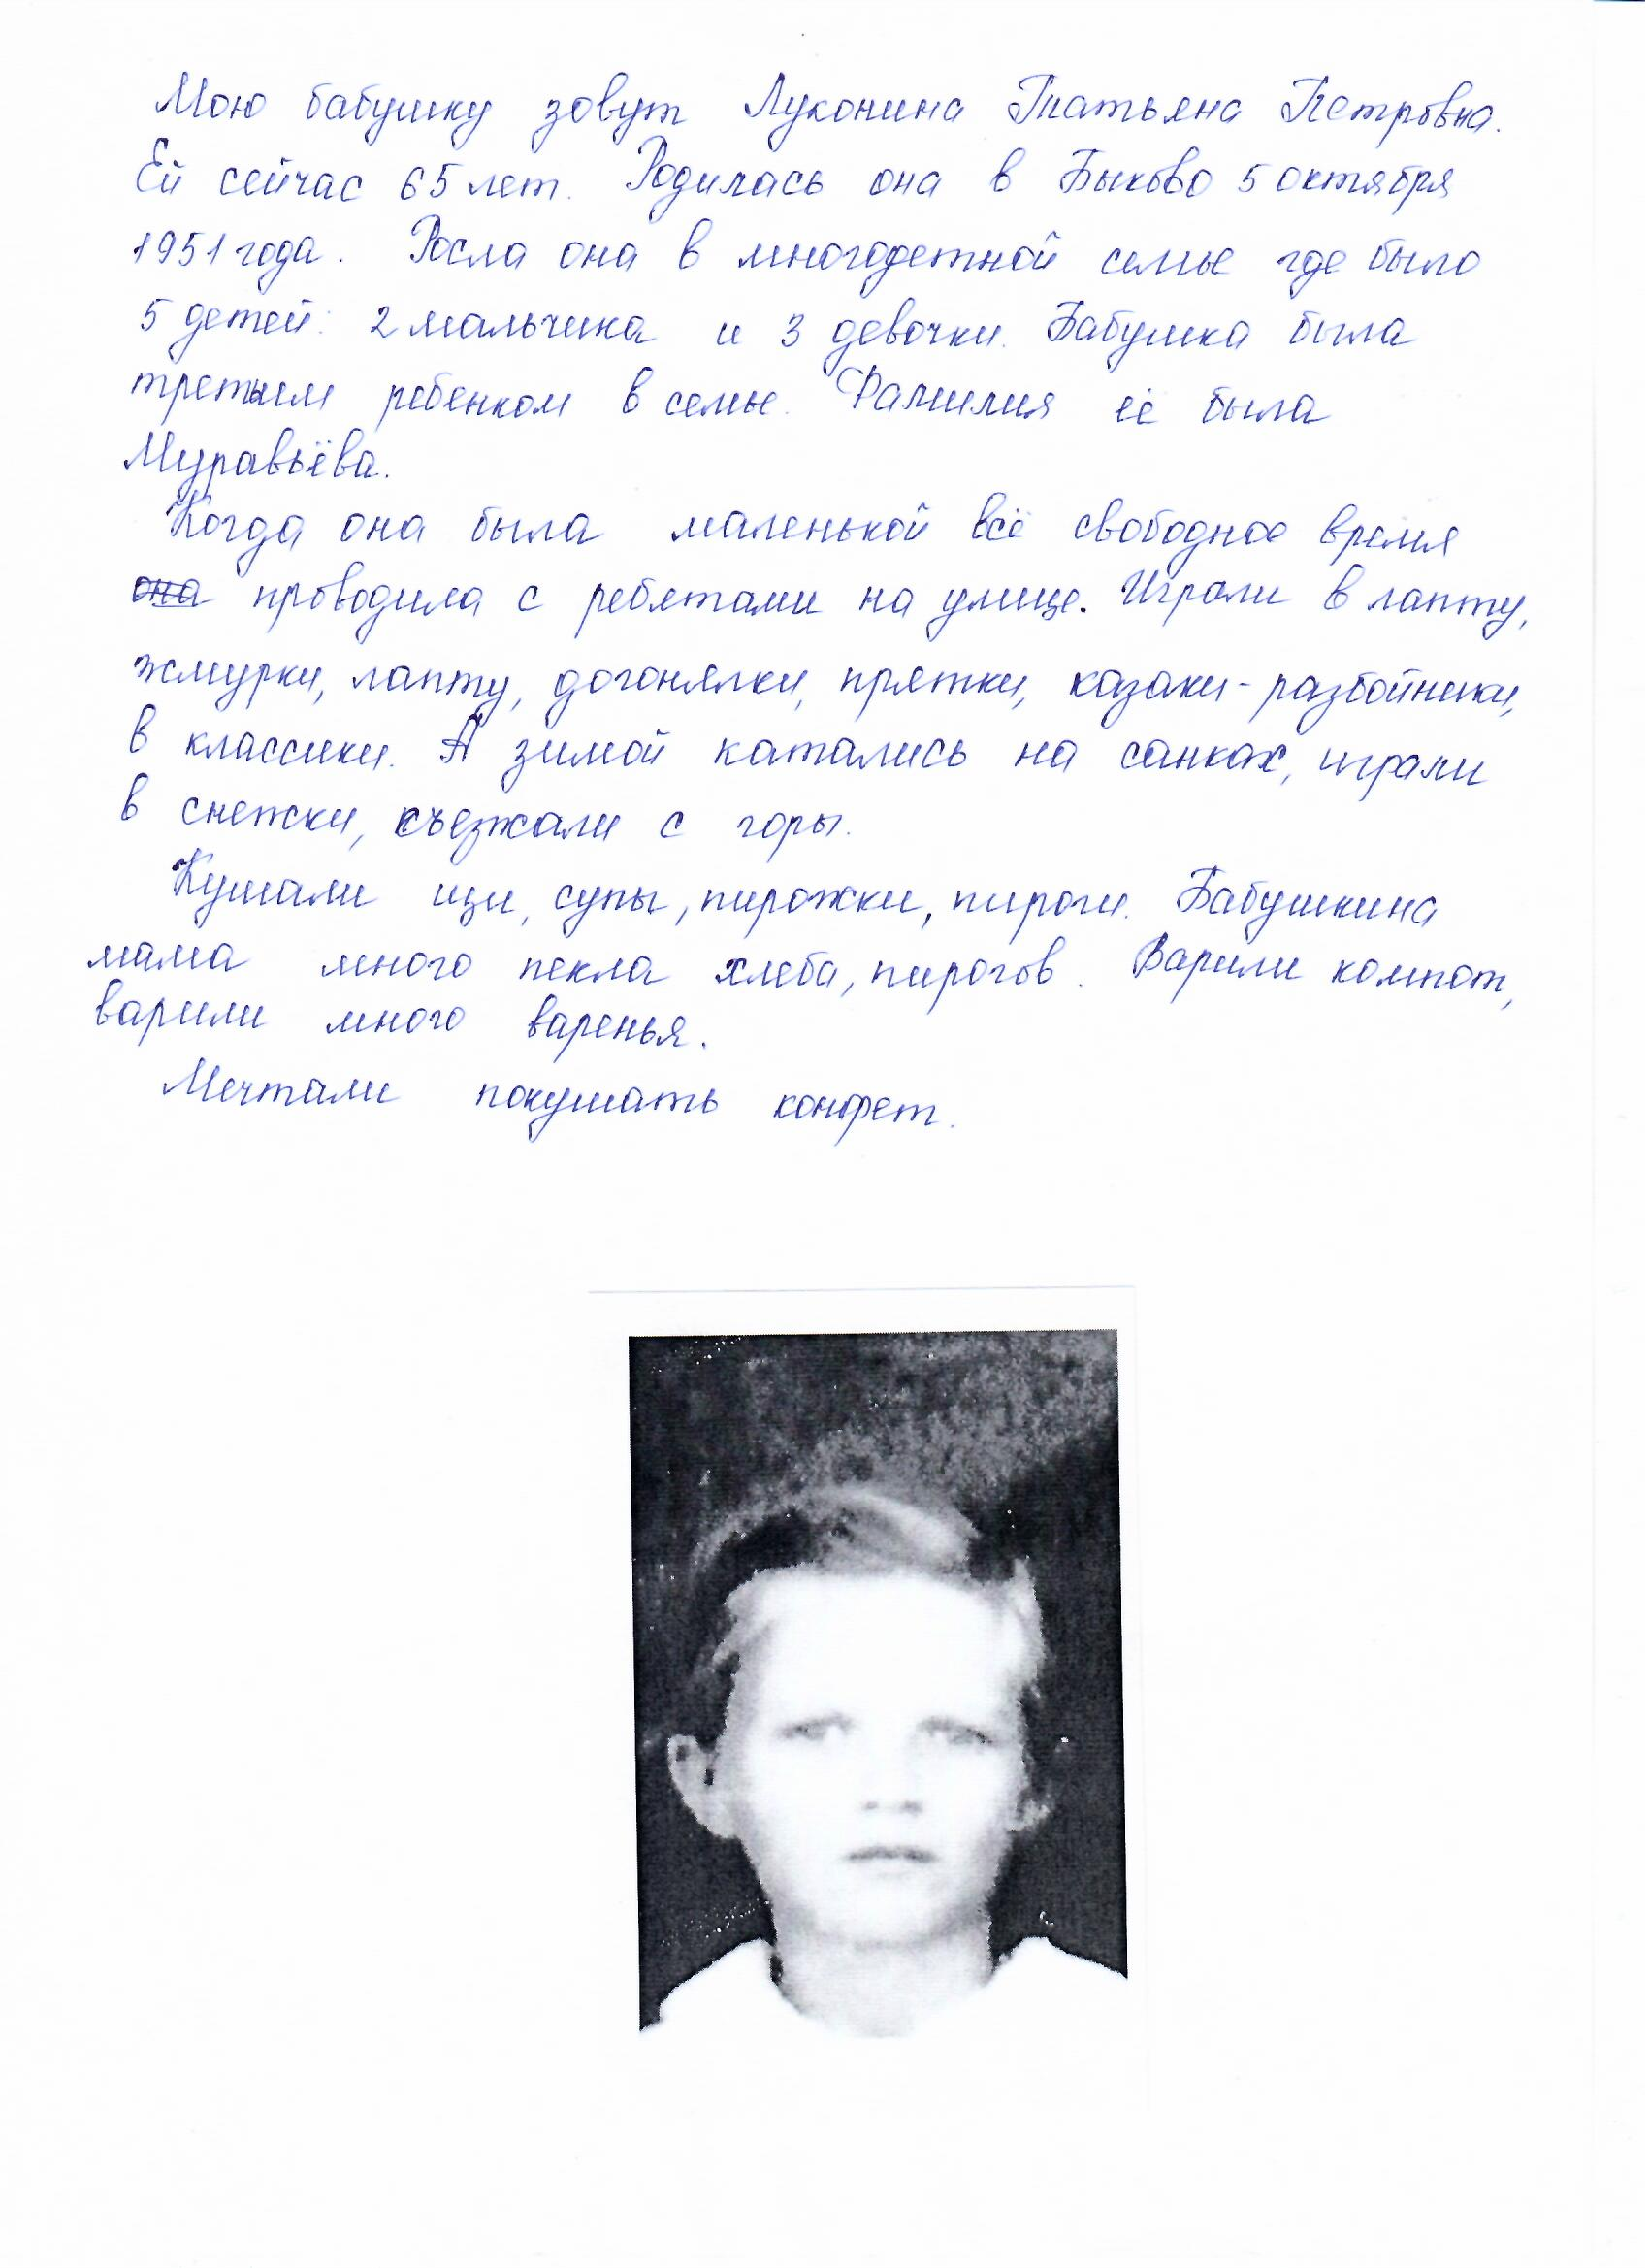 Мою бабушку зовут Луконина Татьяна Петровна.
Ей сейчас 65 лет. Родилась она в Быково 5 октября
1951 года. Росла она в многодетной семье где было
5 детей: 2 мальчика и 3 девочки. Бабушка была
третьим ребенком в семье. Фамилия её была
Муравьёва.
Когда она была маленькой всё свободное время
она проводила с ребятами на улице. Играли в лапту,
жмурки, лапту, догонялки, прятки, казаки-разбойники,
в классики. А зимой катались на санках, играли
в снежки, съезжали с горы.
Кушали щи, супы, пирожки, пироги. Бабушкина
мама много пекла хлеба, пирогов. Варили компот,
варили много варенья.
Мечтали покушать конфет.